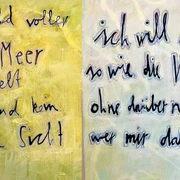 ld voller
Meer
elt
nd kein
Sicht
ich will
so wie die
ohne darüber n
wer mir da